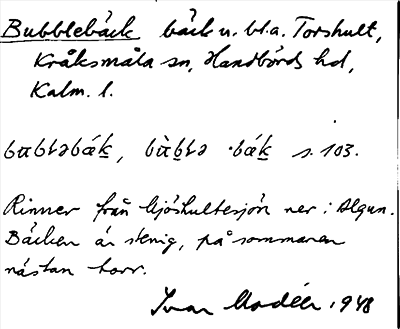 Bubblebäck bäck u. bl.a. Torshult,
Kråksmåla sn, Handbörds hd,
Kalm. l.
bɷbləbǽk, bɷ̀blə ·bǽk s. 103.
Rinner från Mjöshultesjön ner i Algun.
Bäcken är stenig, på sommaren
nästan torr.
Ivar Modéer, 1948